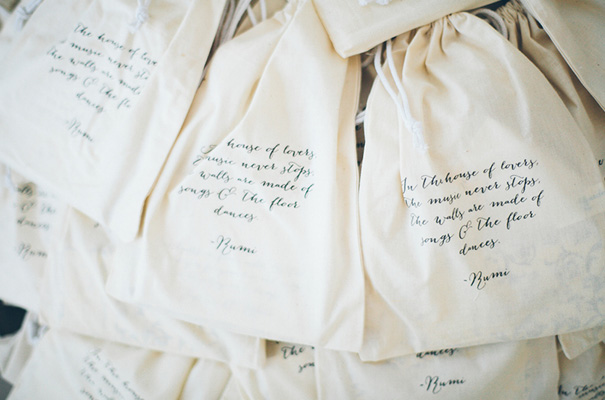 the house of lov
music never sto
the walls are mad
songs & the floor
dances.
-Rumi
house of lovers
music never stops,
walls are made of
songs & the floor
dances.
-Rumi
In the house of lovers,
the music never stops,
the walls are made of
songs & the floor
dances.
-Rumi
dances.
-Rumi